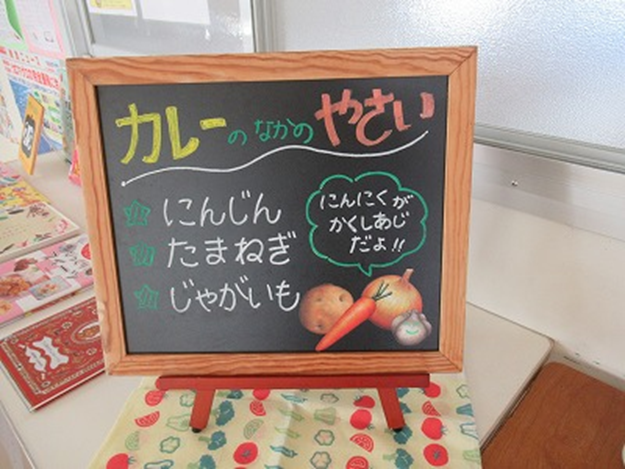 カレーのなかのやさい
にんじん
たまねぎ
じゃがいも
にんにくが
かくしあじ
だよ!!